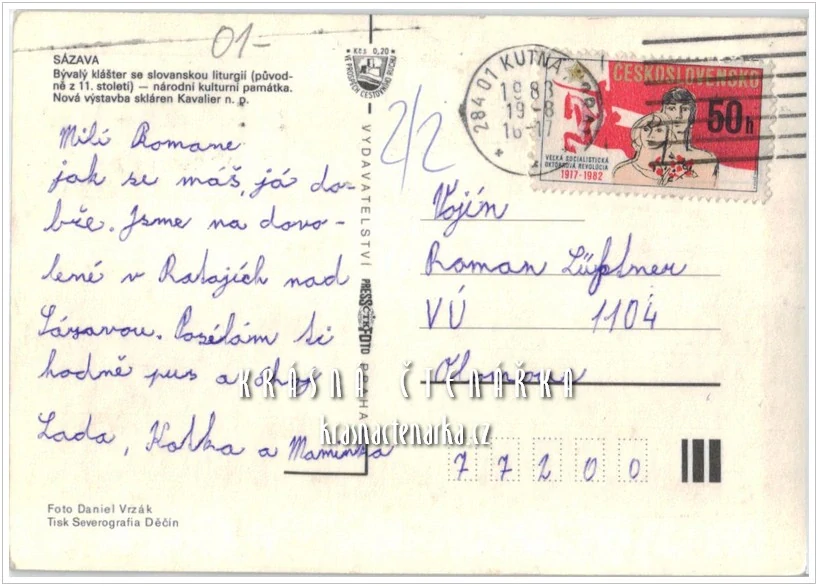 01-
SÁZAVA
Bývalý klášter se slovanskou liturgií (původ-
ně z 11. století) — národní kulturní památka.
Nová výstavba skláren Kavalier n. p.
Kčs 0,20
VE PROSPĚCH CESTOVNÍHO RUCHU
284 01 KUTNÁ HORA
1983
19-8
16-17
ČESKOSLOVENSKO
50h
VEĽKÁ SOCIALISTICKÁ
OKTÓBROVÁ REVOLÚCIA
1917-1982
2/2
Milí Romane
jak se máš, já do-
bře. Jsme na dovo-
lené v Ratajích nad
Sázavou. Posílám ti
hodně pus a ahoj
Lada, Katka a Maminka
VYDAVATELSTVÍ PRESSFOTO PRAHA
Vojín
Roman Lüftner
VÚ 1104
Olomouc
77200
KRÁSNÁ ČTENÁŘKA
krasnactenarka.cz
Foto Daniel Vrzák
Tisk Severografia Děčín